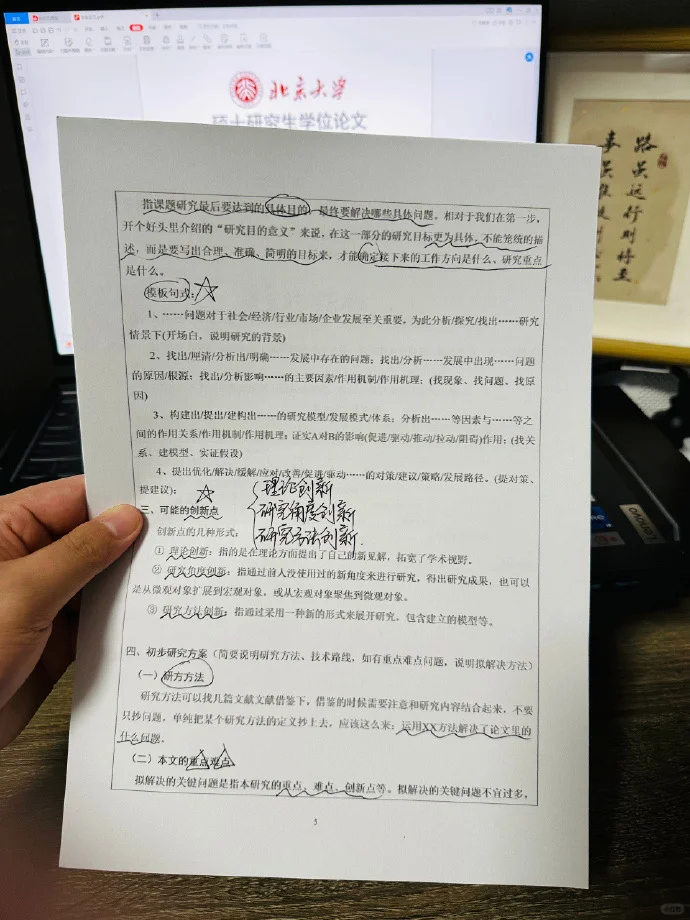 北京大学
硕士研究生学位论文
路虽远行则将至
事虽难做则
指课题研究最后要达到的具体目的，最终要解决哪些具体问题。相对于我们在第一步，
开个好头里介绍的“研究目的意义”来说，在这一部分的研究目标更为具体，不能笼统的描
述，而是要写出合理、准确、简明的目标来，才能确定接下来的工作方向是什么、研究重点
是什么。
模板句式：
1、……问题对于社会/经济/行业/市场/企业发展至关重要，为此分析/探究/找出……研究
情景下(开场白，说明研究的背景)
2、找出/厘清/分析出/明确……发展中存在的问题；找出/分析……发展中出现……问题
的原因/根源；找出/分析影响……的主要因素/作用机制/作用机理；(找现象、找问题、找原
因)
3、构建出/提出/建构出……的研究模型/发展模式/体系；分析出……等因素与……等之
间的作用关系/作用机制/作用机理；证实A对B的影响(促进/驱动/推动/拉动/阻碍)作用；(找关
系、建模型、实证假设)
4、提出优化/解决/缓解/应对/改善/促进/驱动……的对策/建议/策略/发展路径。(提对策、
提建议)；
理论创新
研究角度创新
研究方法创新.
三、可能的创新点
创新点的几种形式：
① 理论创新：指的是在理论方面提出了自己的新见解，拓宽了学术视野。
② 研究角度创新：指通过前人没使用过的新角度来进行研究，得出研究成果，也可以
是从微观对象扩展到宏观对象，或从宏观对象聚焦到微观对象。
③ 研究方法创新：指通过采用一种新的形式来展开研究，包含建立的模型等。
四、初步研究方案（简要说明研究方法、技术路线，如有重点难点问题，说明拟解决方法）
（一）研方方法
研究方法可以找几篇文献文献借鉴下，借鉴的时候需要注意和研究内容结合起来，不要
只抄问题，单纯把某个研究方法的定义抄上去，应该这么来：运用XX方法解决了论文里的
什么问题。
（二）本文的重点难点
拟解决的关键问题是指本研究的重点、难点、创新点等。拟解决的关键问题不宜过多，
5
lenovo